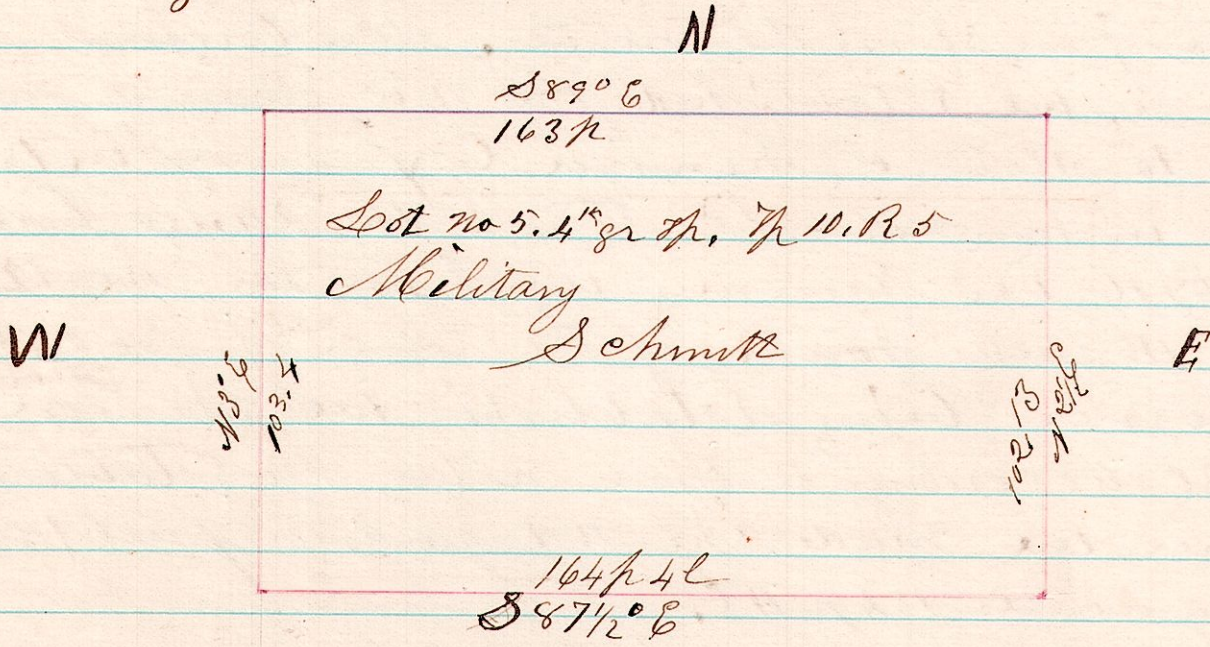 N
S 89° E
163 p
Lot no 5. 4th qr Tp. Tp 10. R 5
Military
Schmitt
W
E
N 3° E
103.4
102.13
164 p 4 l
S 87 1/2° E